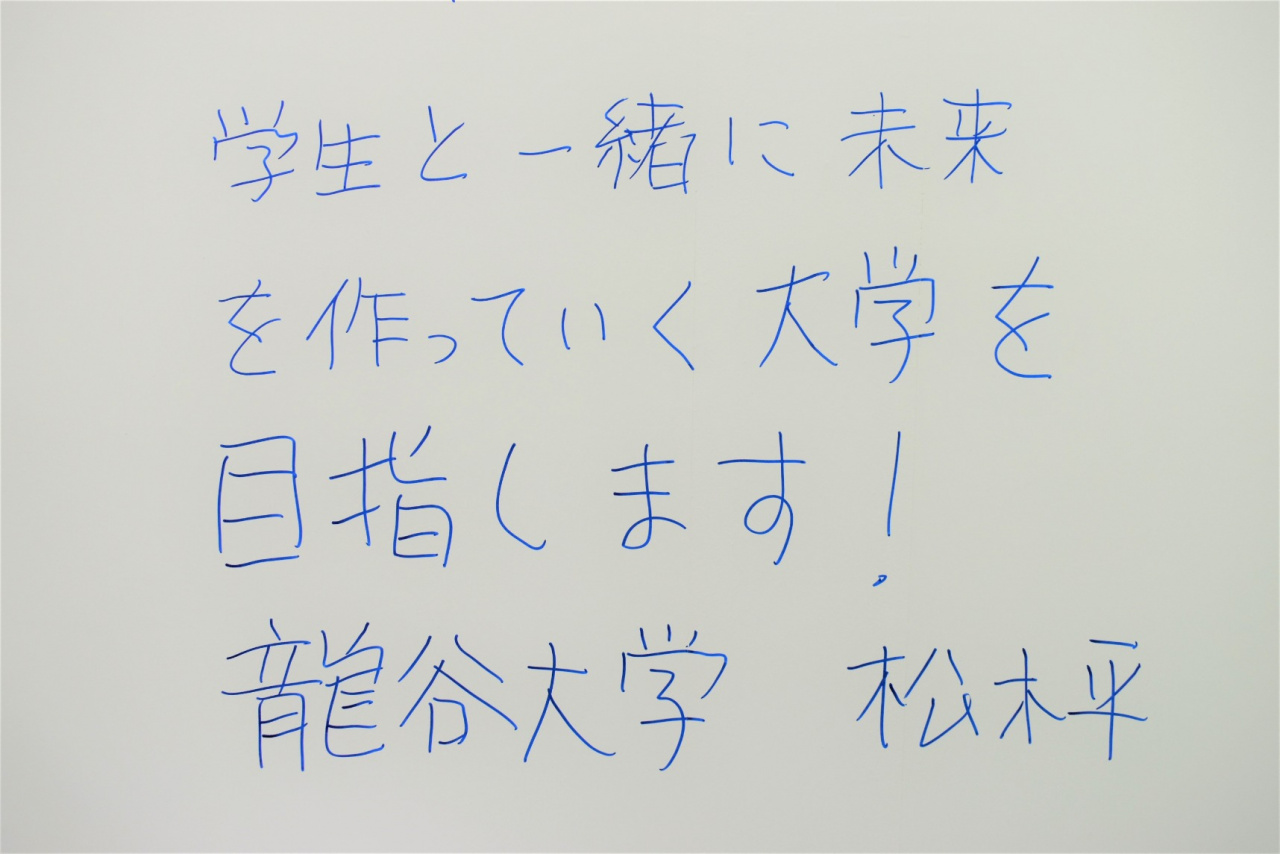 学生と一緒に未来
を作っていく大学を
目指します!
龍谷大学　松木平